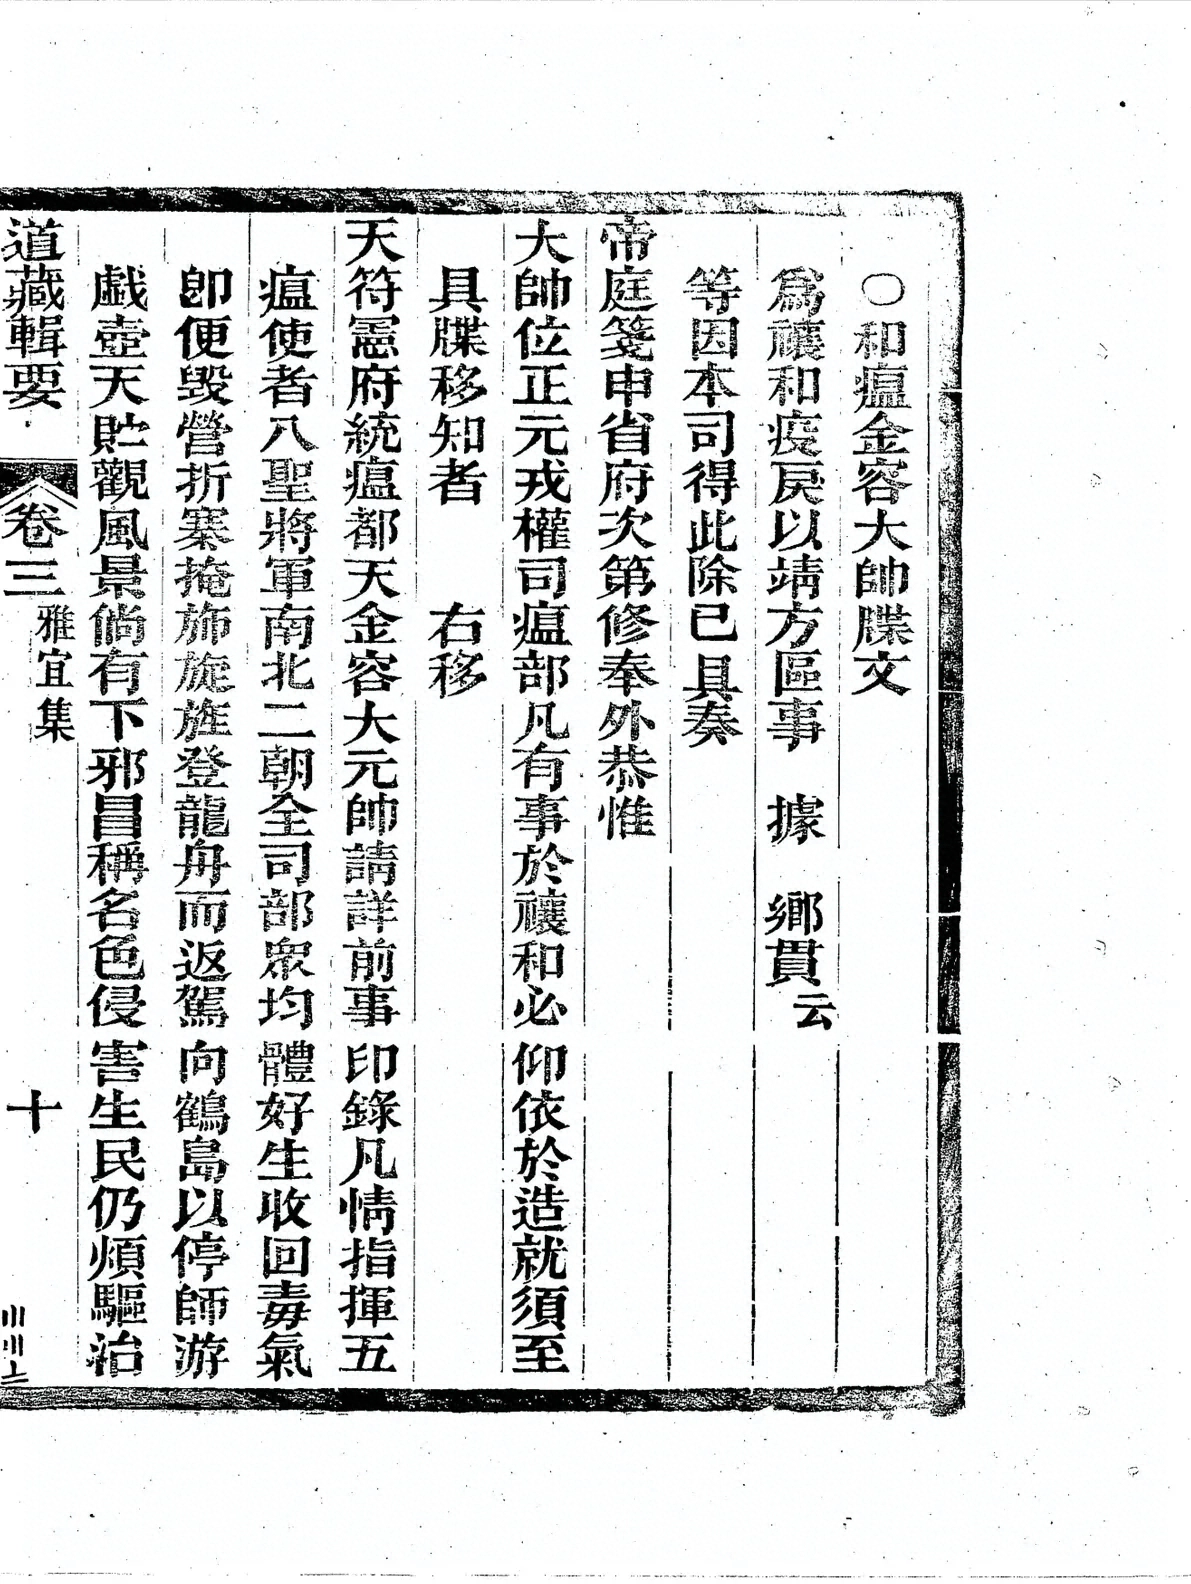 〇和瘟金容大帥牒文
爲禳和疫戾以靖方區事　據　鄉貫云
等因本司得此除已具奏
帝庭箋申省府次第修奉外恭惟
大帥位正元戎權司瘟部凡有事於禳和必仰依於造就須至
具牒移知者　　右移
天符靁府統瘟都天金容大元帥請詳前事印錄凡情指揮五
瘟使者八聖將軍南北二朝全司部眾均體好生收回毒氣
卽便毀營折寨掩斾旋旌登龍舟而返駕向鶴島以停師游
戲壺天貯觀風景倘有下邪昌稱名色侵害生民仍煩驅治
道藏輯要
卷三
雅宜集
十